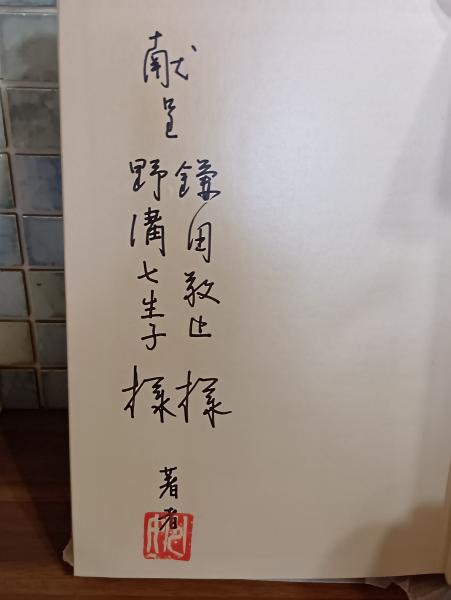 献呈
鎌田敬止様
野溝七生子様
著者